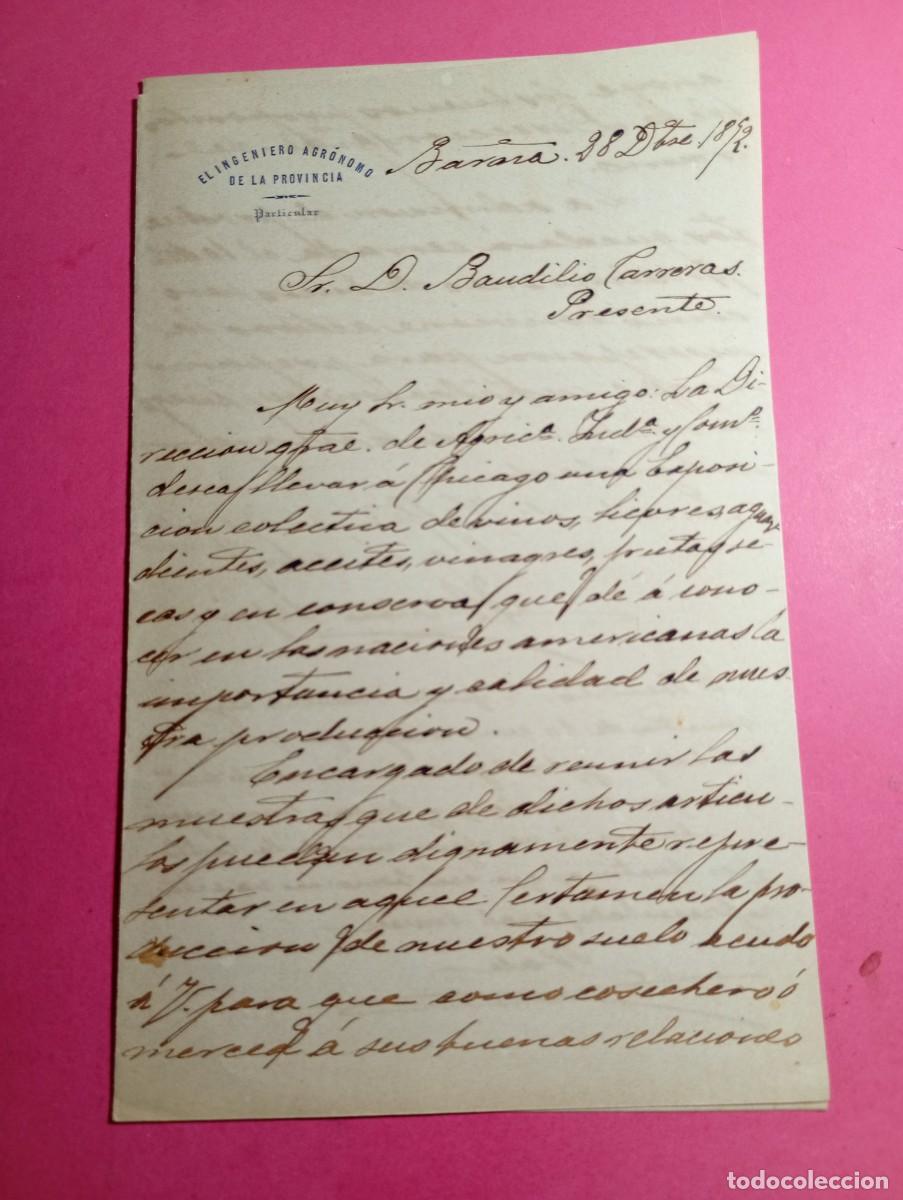 EL INGENIERO AGRÓNOMO
DE LA PROVINCIA
Particular
Barna. 28 Dbre. 1892.
Sr. D. Baudilio Carreras.
Presente.
Muy Sr. mio y amigo: La Di-
reccion gral. de Agrica. Inda. y Como.
desea llevar á Chicago una Exposi-
cion colectiva de vinos, licores, aguar-
dientes, aceites, vinagres, frutas se-
cas y en conserva que dé á cono-
cer en las naciones americanas la
importancia y calidad de nues-
tra produccion.
Encargado de reunir las
muestras que de dichos articu-
los puedan dignamente repre-
sentar en aquel Certamen la pro-
duccion de nuestro suelo acudo
á V. para que como cosechero ó
merced á sus buenas relaciones
todocoleccion